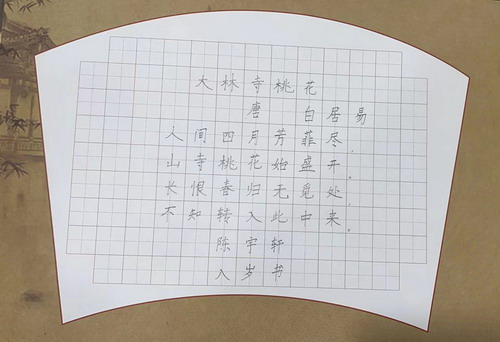 大林寺桃花
唐 白居易
人间四月芳菲尽。
山寺桃花始盛开。
长恨春归无觅处。
不知转入此中来。
陈宇轩
八岁书